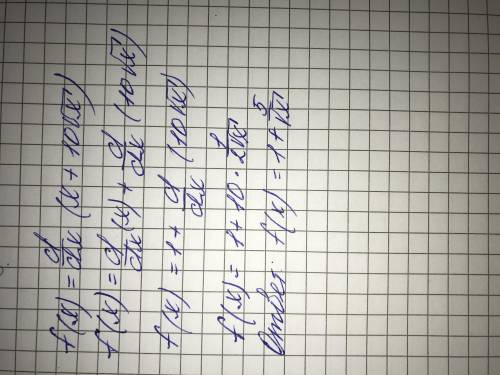 f(x) = d/dx (x + 10√x)
f(x) = d/dx (x) + d/dx (10√x)
f(x) = 1 + d/dx (10√x)
f(x) = 1 + 10 · 1/2√x
Ответ: f(x) = 1 + 5/√x